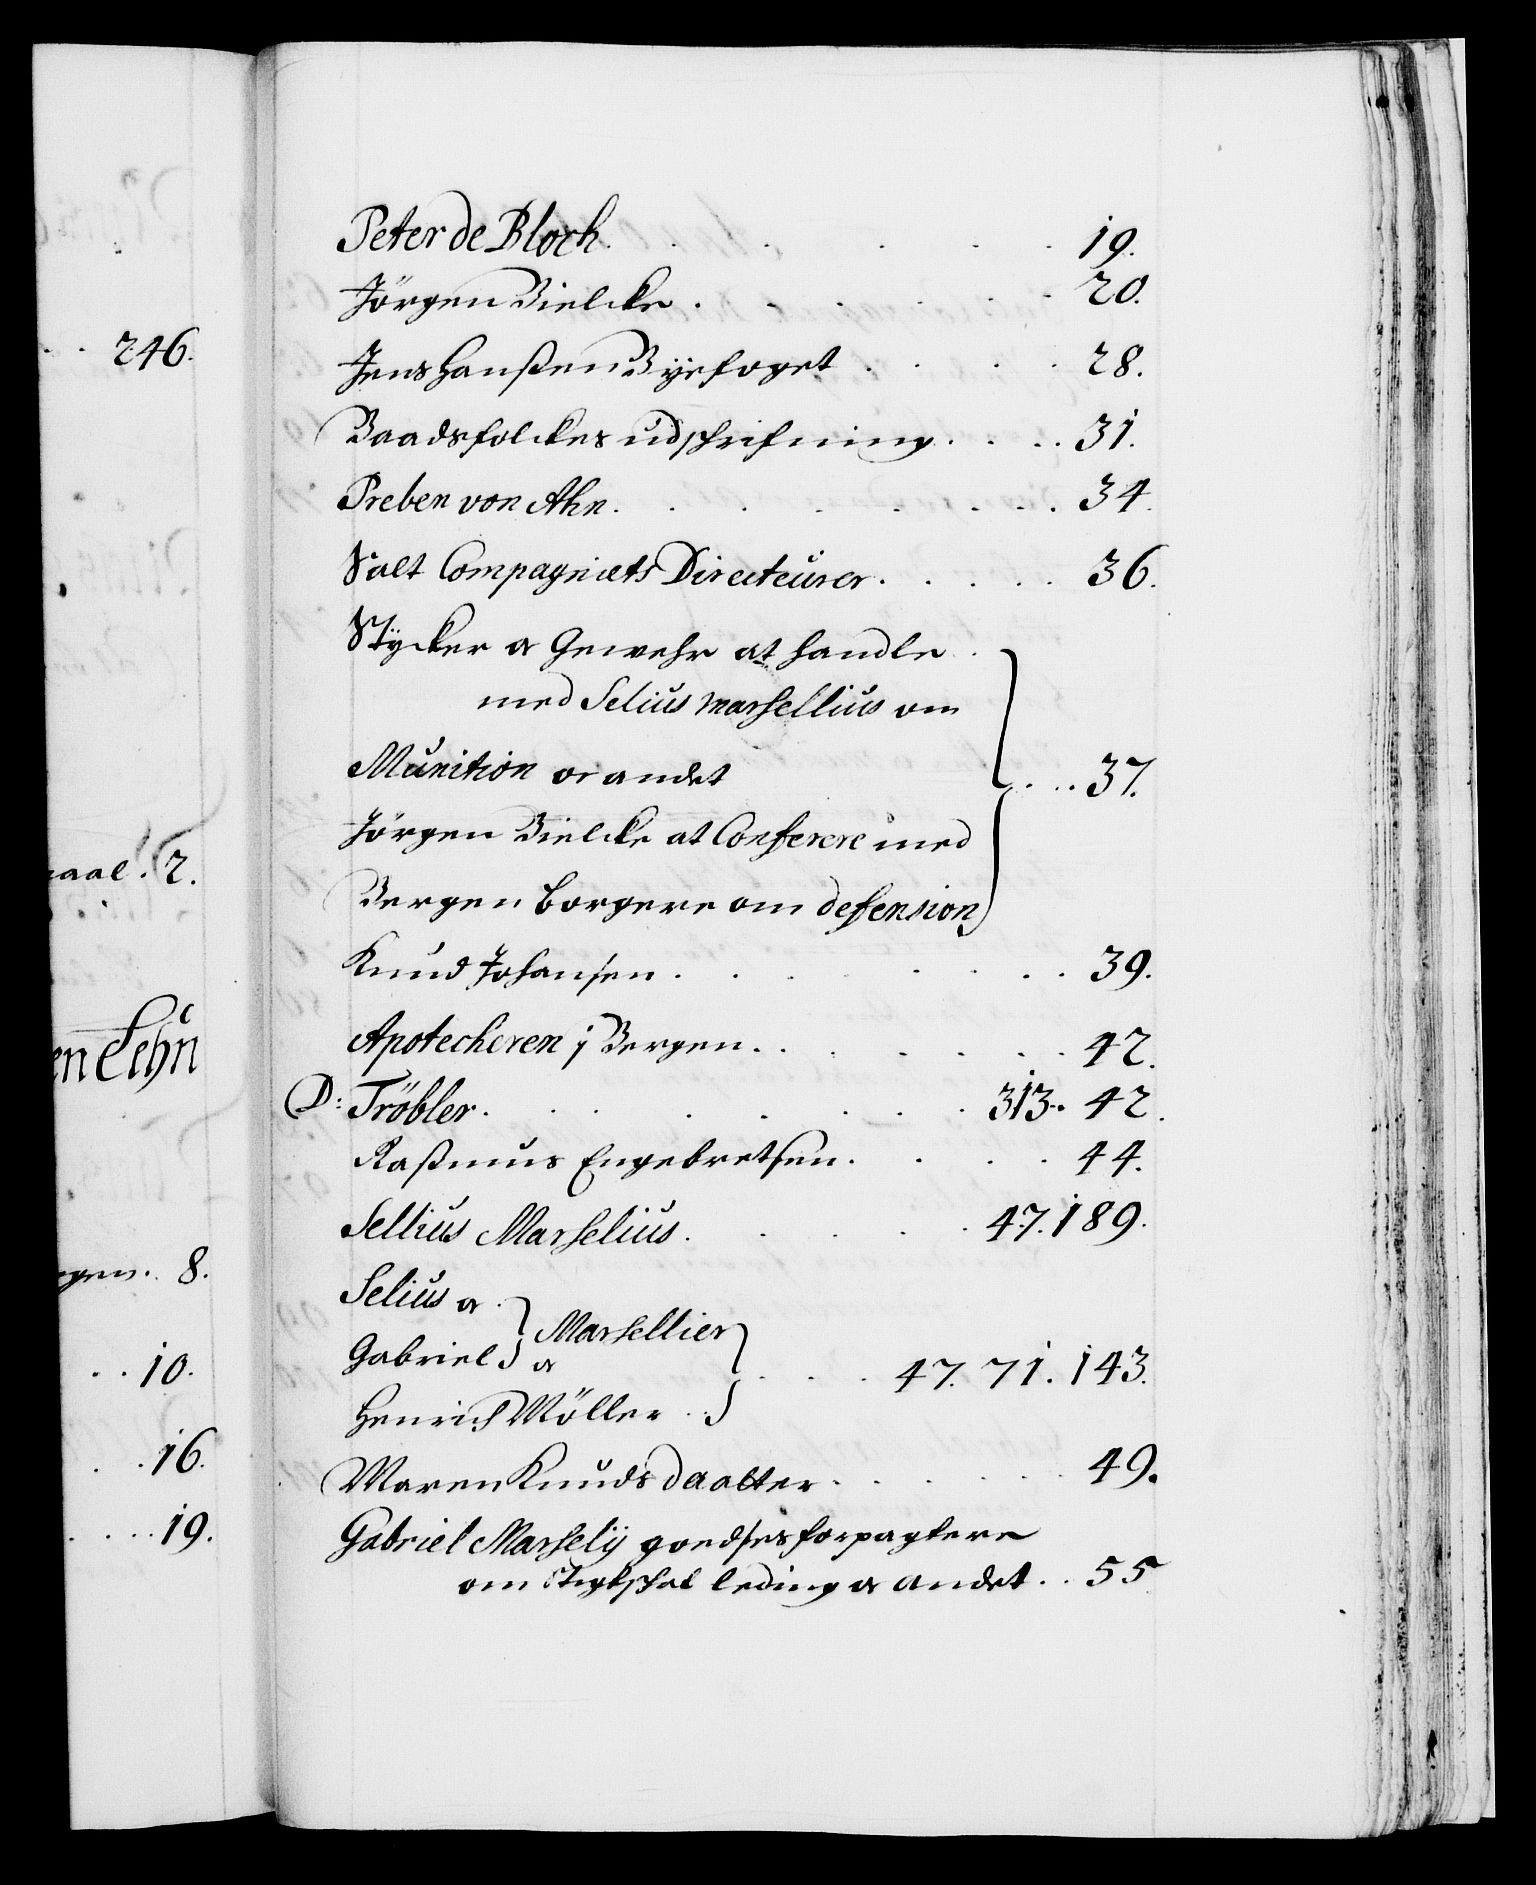 246.
aal. 2.
en Lehn
gen. 8.
10.
16.
19.
Peter de Bloch. 19.
Jörgen Bielcke. 20.
Jens Hanßen Byefoget 28.
Baadsfolckes udschrifning. 31.
Preben von Ahn. 34.
Salt Compagniets Directeurer. 36.
Stycker og Gewehr at handle
med Selius Marsellius om
Munition og andet 37.
Jörgen Bielcke at Conferere med
Bergen borgere om defension
Knud Johansen. 39.
Apotecheren j Bergen. 42.
D: Tröbler. 313. 42.
Raßmus Engebretsen. 44.
Sellius Marselius. 47. 189.
Selius og
Gabriel } Marsellier
og
47. 71. 143.
Henrich Möller.
Maren Knuds daatter. 49.
Gabriel Marselij goedses forpagtere
om leding og andet. 55